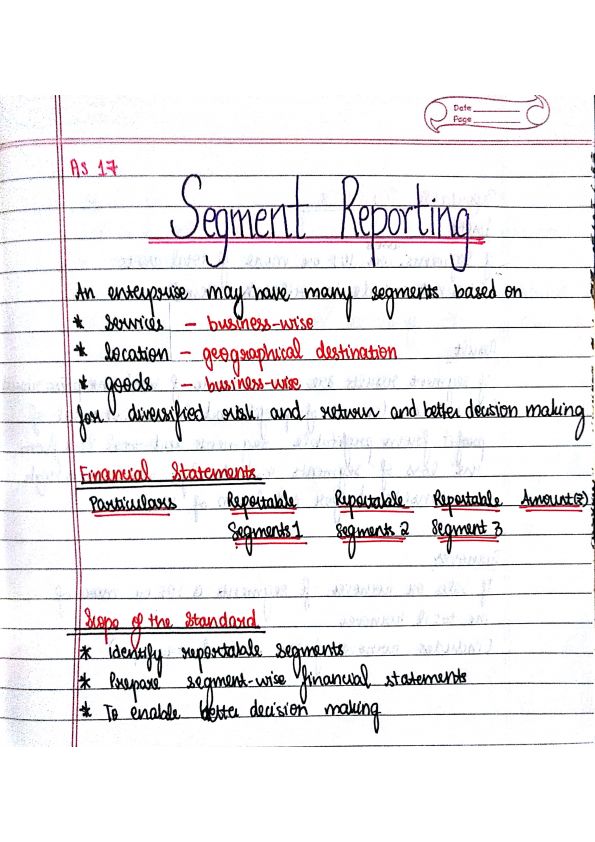 Date
Page
AS 17
Segment Reporting
An enterprise may have many segments based on
* services - business-wise
* location - geographical destination
* goods - business-wise
for diversified risk and return and better decision making
Financial Statements
Particulars Reportable Reportable Reportable Amount(₹)
Segments 1 Segments 2 Segment 3
Scope of the Standard
* Identify reportable segments
* Prepare segment-wise financial statements
* To enable better decision making